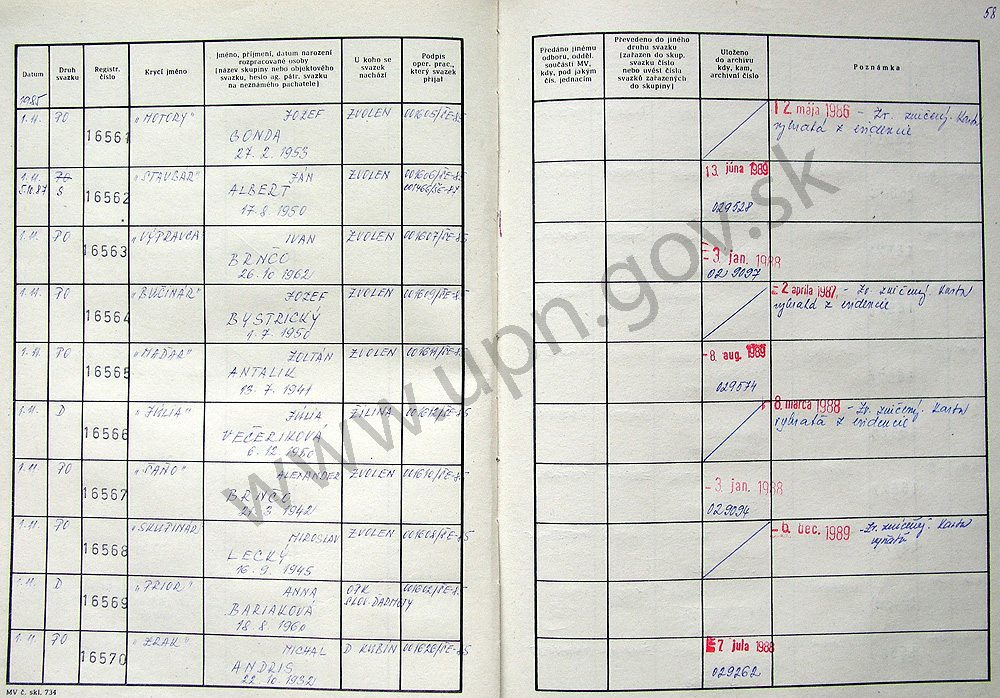 58
Datum
Druh svazku
Registr. číslo
Krycí jméno
Jméno, příjmení, datum narození rozpracované osoby (název skupiny nebo objektového svazku, heslo ag. pátr. svazku na neznámého pachatele)
U koho se svazek nachází
Podpis oper. prac., který svazek přijal
Předáno jinému odboru, odděl. součásti MV, kdy, pod jakým čís. jednacím
Převedeno do jiného druhu svazku (zařazen do skup. svazku číslo nebo uvést čísla svazků zařazených do skupiny)
Uloženo do archivu kdy, kam, archivní číslo
Poznámka
1985
1.11. PO 16561 „MOTORY" JOZEF ZVOLEN 001605/ČE-85
GONDA
27. 2. 1953
2. mája 1986 - Zv. zničený. Karta
vybratá z evidencie
1.11. PO 16562 „STAVBÁR" JÁN ZVOLEN 001606/ČE-85
5.10.87 S ALBERT 001466/ČE-87
17. 8. 1950
13. júna 1989
029528
1.11. PO 16563 „VÝPRAVCA IVAN ZVOLEN 001607/ČE-85
BRNČO
26. 10. 1962
3. jan. 1988
029097
1.11. PO 16564 „BUČINÁR" JOZEF ZVOLEN 001609/ČE-85
BYSTRICKÝ
1. 7. 1950
2. apríla 1987 - Zv. zničený. Karta
vybratá z evidencie
1.11. PO 16565 „MAĎAR" ZOLTÁN ZVOLEN 001611/ČE-85
ANTALIK
13. 7. 1941
8. aug. 1989
029574
1.11. D 16566 „JÚLIA" JÚLIA ŽILINA 001612/ČE-85
VEČERIKOVÁ
6. 12. 1950
8. marca 1988 - Zv. zničený. Karta
vybratá z evidencie
1.11. PO 16567 „SAŇO" ALEXANDER ZVOLEN 001610/ČE-85
BRNČO
3. 1942
3. jan. 1988
029094
1.11. PO 16568 „SKUPINÁR MIROSLAV ZVOLEN 001608/ČE-85
LECKÝ
16. 9. 1945
6. dec. 1989 - Zv. zničený. Karta
vyňatá
1.11. D 16569 „PRIOR" ANNA OPK 001602/ČE-85
BARIAKOVÁ
18. 8. 1960
1.11. PO 16570 „ZRAK" MICHAL D. KUBÍN 001626/ČE-85
ANDRIS
22. 10. 1932
7 júla 1988
029262
MV č. skl. 734
www.upn.gov.sk